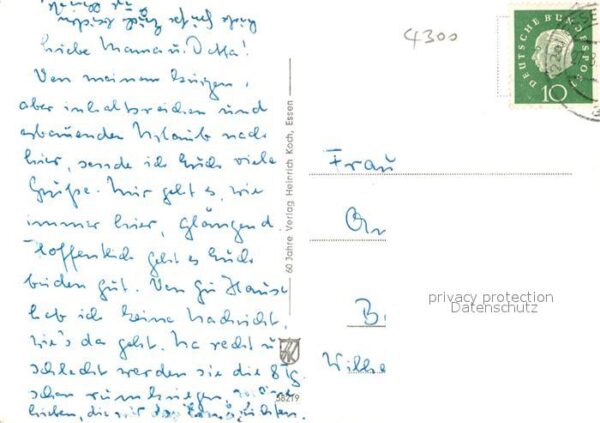 Liebe Mama u. Datta!
Von meinem kurzen,
aber inhaltsreichen und
erbauenden Urlaub nach
hier, sende ich Euch viele
Grüße. Mir geht es, wie
immer hier, glänzend.
Hoffentlich geht es Euch
beiden gut. Von zu Hause
hab ich keine Nachricht,
wie's da geht. Na recht u.
schlecht werden sie die 8 Tg.
schon rumkriegen,
60 Jahre Verlag Heinrich Koch, Essen
58219
4300
DEUTSCHE BUNDESPOST
10
Frau
B.
Wilhe
privacy protection
Datenschutz